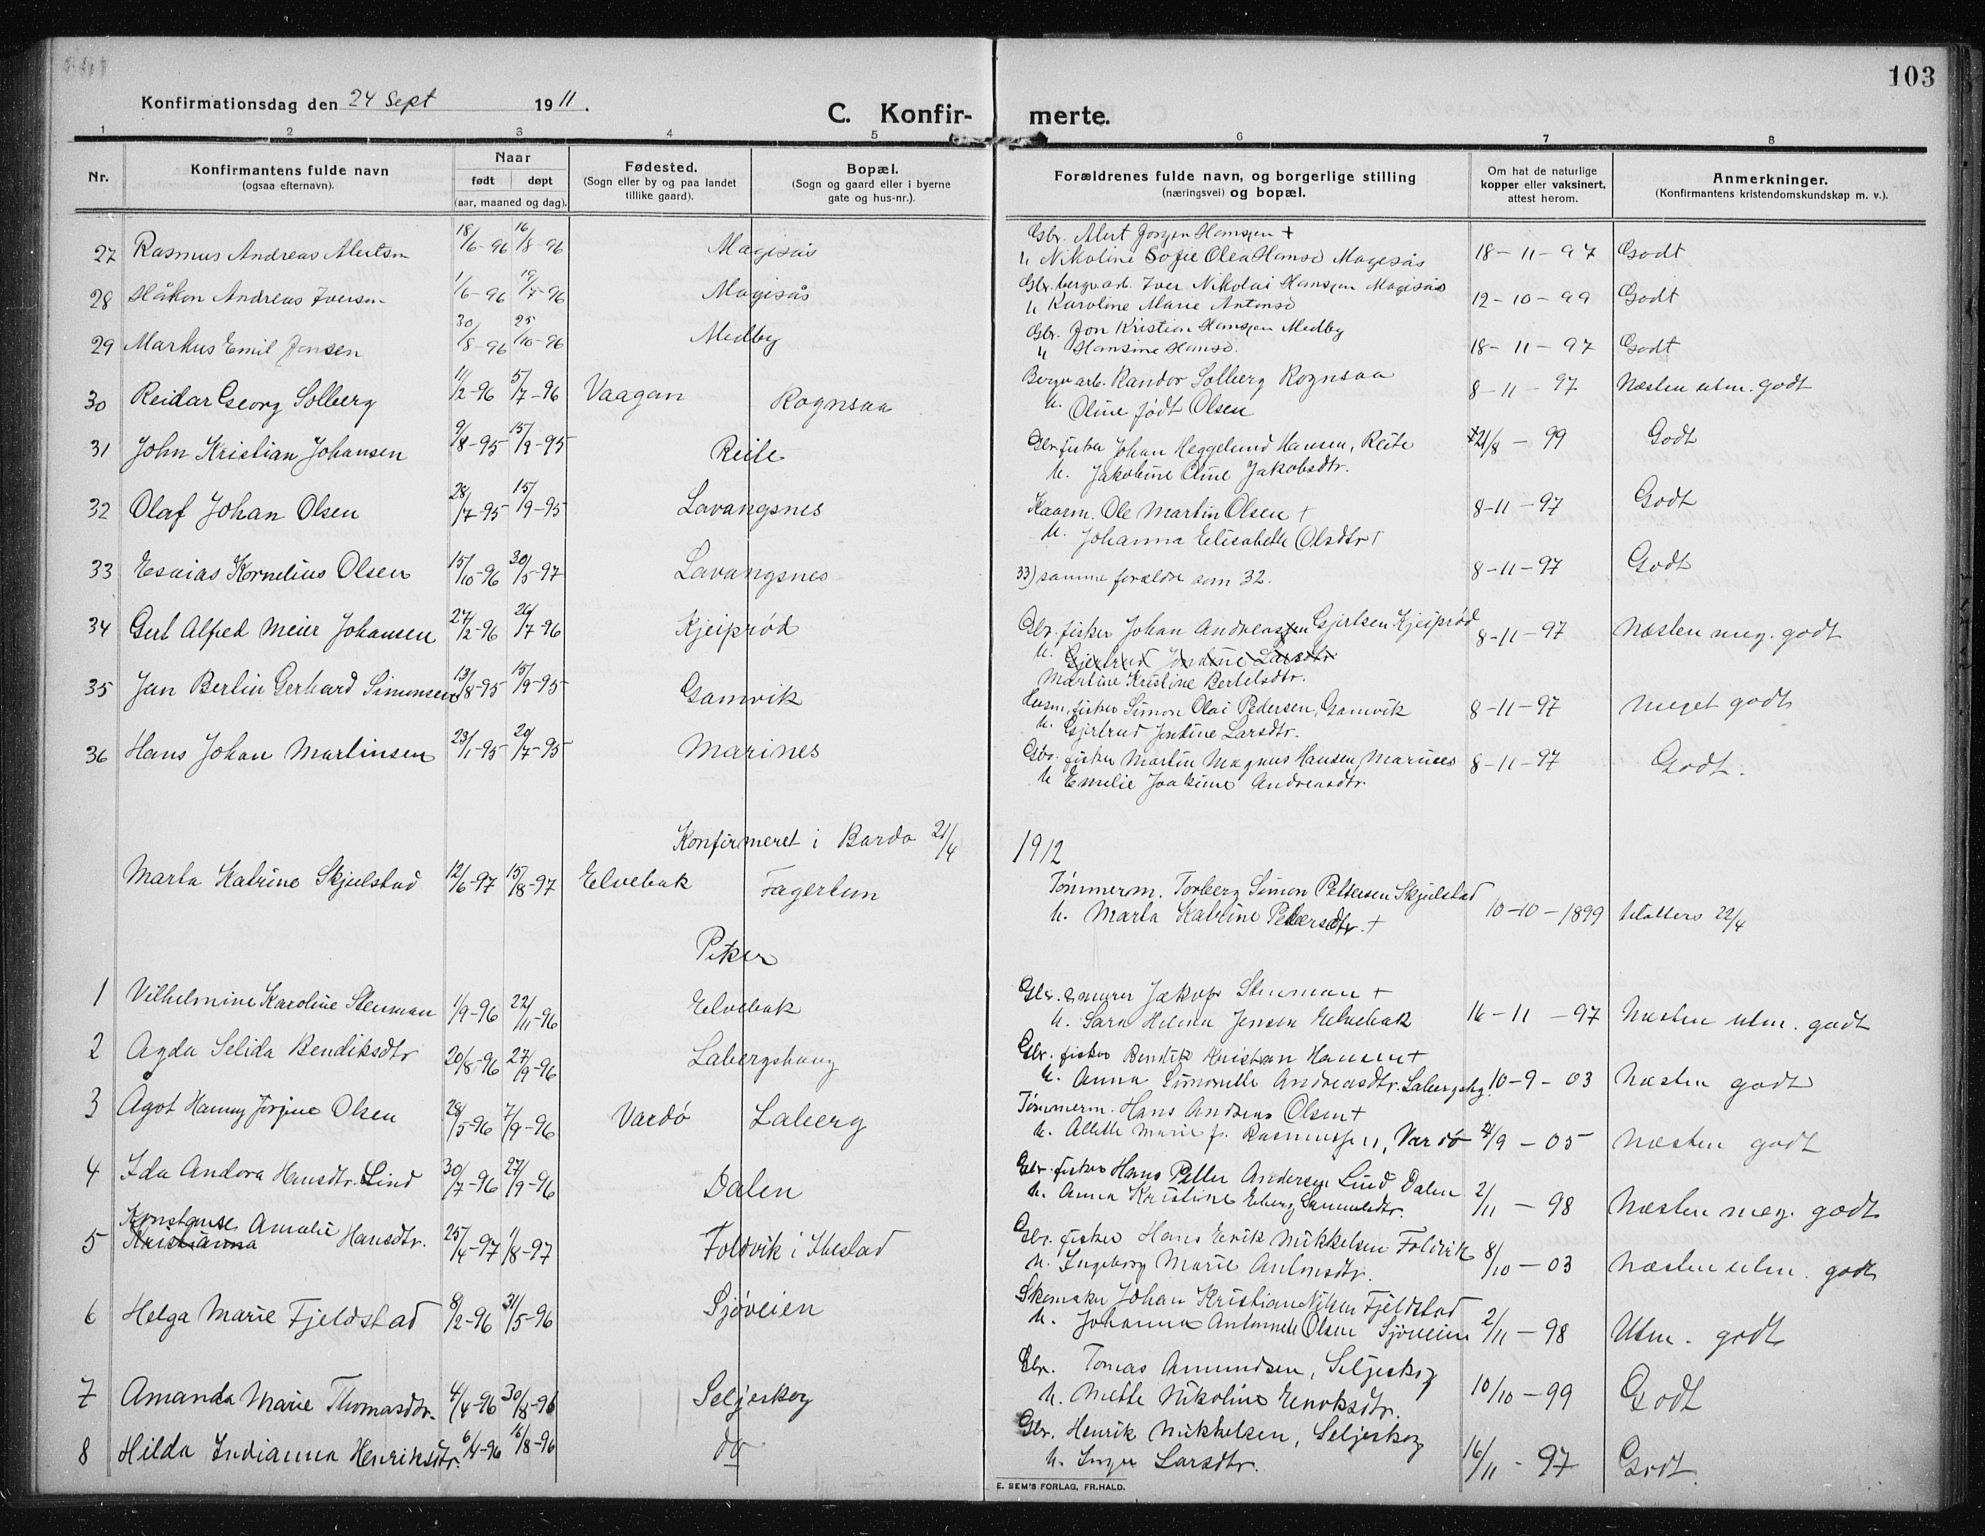 103
Konfirmationsdag den 24 Sept 1911.
C. Konfir-merte.
1 2 3 4 5 6 7 8
Nr. Konfirmantens fulde navn (ogsaa efternavn). Naar født døpt (aar, maaned og dag). Fødested. (Sogn eller by og paa landet tillike gaard). Bopæl. (Sogn og gaard eller i byerne gate og hus-nr.). Forældrenes fulde navn, og borgerlige stilling (næringsvei) og bopæl. Om hat de naturlige kopper eller vaksinert, attest herom. Anmerkninger. (Konfirmantens kristendomskundskap m. v.).
27 Rasmus Andreas Alertsen 18/6-96 16/8-96 Magisås Gbr. Alert Jørgen Hansen + 18-11-97 Godt
u Nikoline Sofie Olea Hansd Magisås
28 Håkon Andreas Iversen 1/6-96 19/7-96 Magisås Gbr. bergv.arb. Iver Nikolai Hansen Magisås 12-10-99 Godt
u Karoline Marie Antonsd
29 Markus Emil Jensen 30/8-96 25/10-96 Medby Gbr. Jon Kristian Hansen Medby 18-11-97 Godt
u Hansine Hansd.
30 Reidar Georg Solberg 11/2-96 5/7-96 Vaagan Rognsaa Bergv.arb. Randor Solberg Rognsaa 8-11-97 Næsten utm. godt
u. Oline født Olsen
31 John Kristian Johansen 9/8-95 15/9-95 Reite Gbr. fisker Johan Heggelund Hansen, Reite 21/8-99 Godt
u. Jakobine Eline Jakobsdtr.
32 Olaf Johan Olsen 28/7-95 15/9-95 Lavangsnes Kaarm. Ole Martin Olsen + 8-11-97 Godt
u. Johanna Elisabeth Olsdtr +
33 Esaias Kornelius Olsen 15/10-96 30/5-97 Lavangsnes 33) samme forældre som 32. 8-11-97 Godt
34 Gert Alfred Meier Johansen 27/2-96 26/7-96 Kjeiprød Gbr. fisker Johan Andreassen Gjertsen Kjeiprød 8-11-97 Næsten meg. godt
u. Gjertrud Jentine Larsdtr
Martine Kristine Bertelsdtr.
35 Jan Berlin Gerhard Simonsen 13/8-95 15/9-95 Gamvik Husm. fisker Simon Olai Pedersen, Gamvik 8-11-97 meget godt
u. Gjertrud Jentine Larsdtr.
36 Hans Johan Martinsen 23/1-95 20/7-95 Marines Gbr. fisker Martin Magnus Hansen, Marines 8-11-97 Godt.
u Emelie Joakime Andreasdtr.
Konfirmeret i Bardo 21/4 1912
Marta Katrine Skjelstad 12/6-97 15/8-97 Elvebak Fagerlun Tømmerm. Torberg Simon Pettersen Skjelstad 10-10-1899 22/4
u. Marta Katrine Pedersdtr. +
Piker
1 Vilhelmine Karoline Stenman 1/9-96 22/11-96 Elvebak Gbr. murer Jakop Stenman + 16-11-97 Næsten utm. godt
u. Sara Helena Jensen Elvebak
2 Agda Selida Bendiksdtr 20/8-96 27/9-96 Labergshaug Gbr. fisker Bendik Kristian Hansen + 10-9-03 Næsten godt
u. Anna Simonette Andreasdtr. Labergshg.
3 Ågot Hanny Jørgine Olsen 28/5-96 7/9-96 Vardø Laberg Tømmerm. Hans Andreas Olsen + 4/9-05 Næsten godt
u. Allette Marie f. Rasmussen, Vardö
4 Ida Andora Hansdtr. Lind 30/7-96 27/9-96 Dalen Gbr. fisker Hans Petter Andersen Lind Dalen 2/11-98 Næsten meg. godt
u. Anna Kristine Eberg Samuelsdtr.
5 Konstanse Kristianna Amalie Hansdtr. 25/4-97 1/8-97 Foldvik i Ibestad Gbr. fisker Hans Erik Mikkelsen Foldvik 8/10-03 Næsten utm. godt
u. Ingeborg Marie Antonsdtr.
6 Helga Marie Fjeldstad 8/2-96 31/5-96 Sjøveien Skomaker Johan Kristian Nilsen Fjeldstad 2/11-98 Utm. godt
u. Johanna Antonnete Olsen Sjøveien
7 Amanda Marie Thomasdtr. 4/4-96 30/8-96 Seljeskog Gbr. Tomas Amundsen, Seljeskog 10/10-99 Godt
u. Mette Nikoline Enoksdtr.
8 Hilda Indianna Henriksdtr. 6/4-96 16/8-96 do Gbr. Henrik Mikkelsen, Seljeskog 16/11-97 Godt
u. Inger Larsdtr.
E. SEM'S FORLAG, FR.HALD.